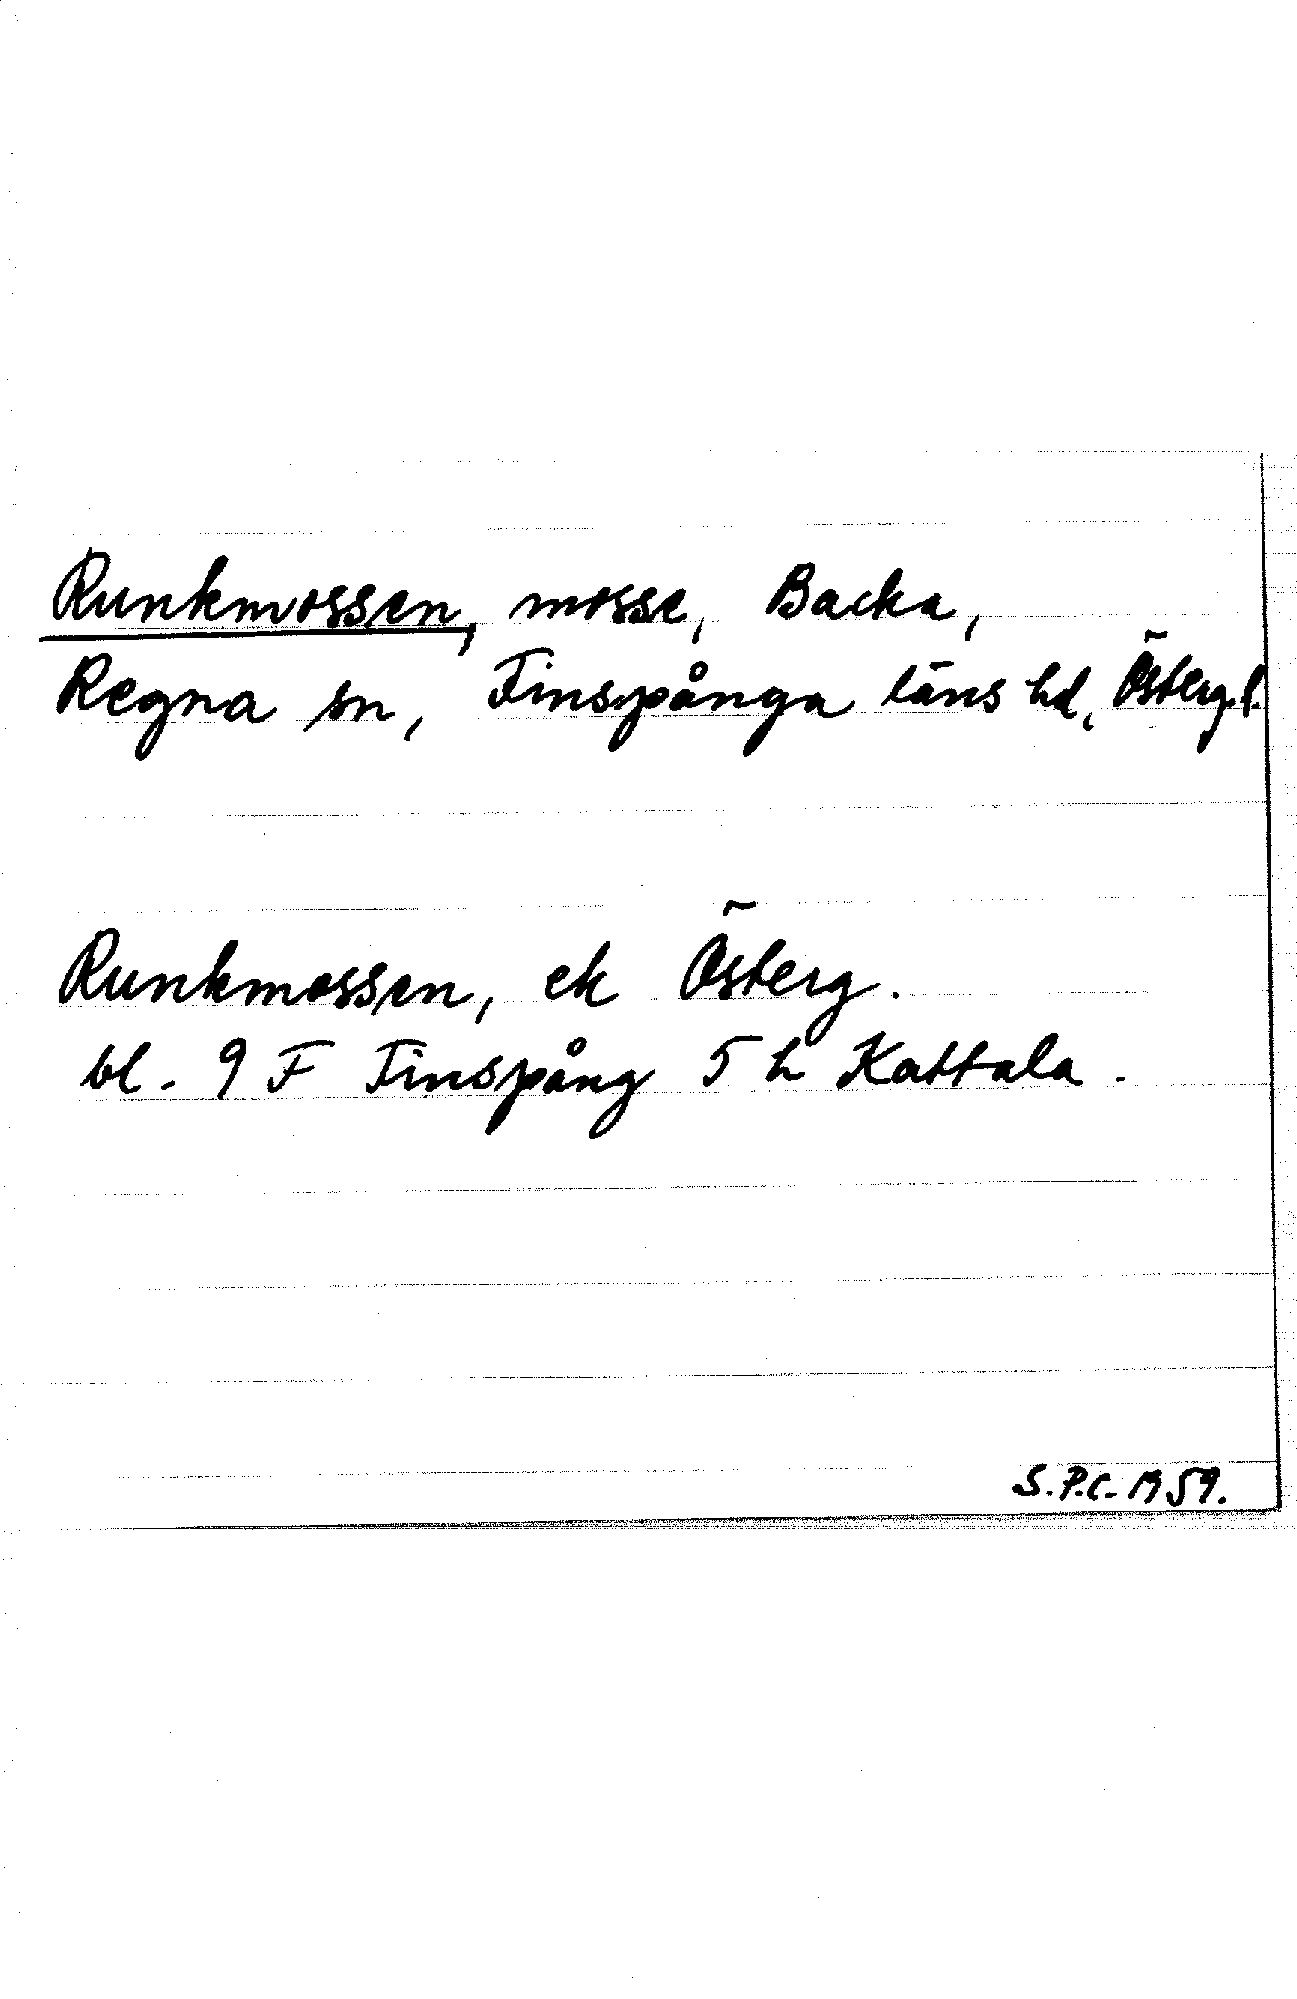 Runkmossen, mosse, Backa,
Regna sn, Finspånga läns hd, Österg.l.
Runkmossen, ek Österg.
bl. 9 F Finspång 5 h Kattala.
S.P.C. 1959.